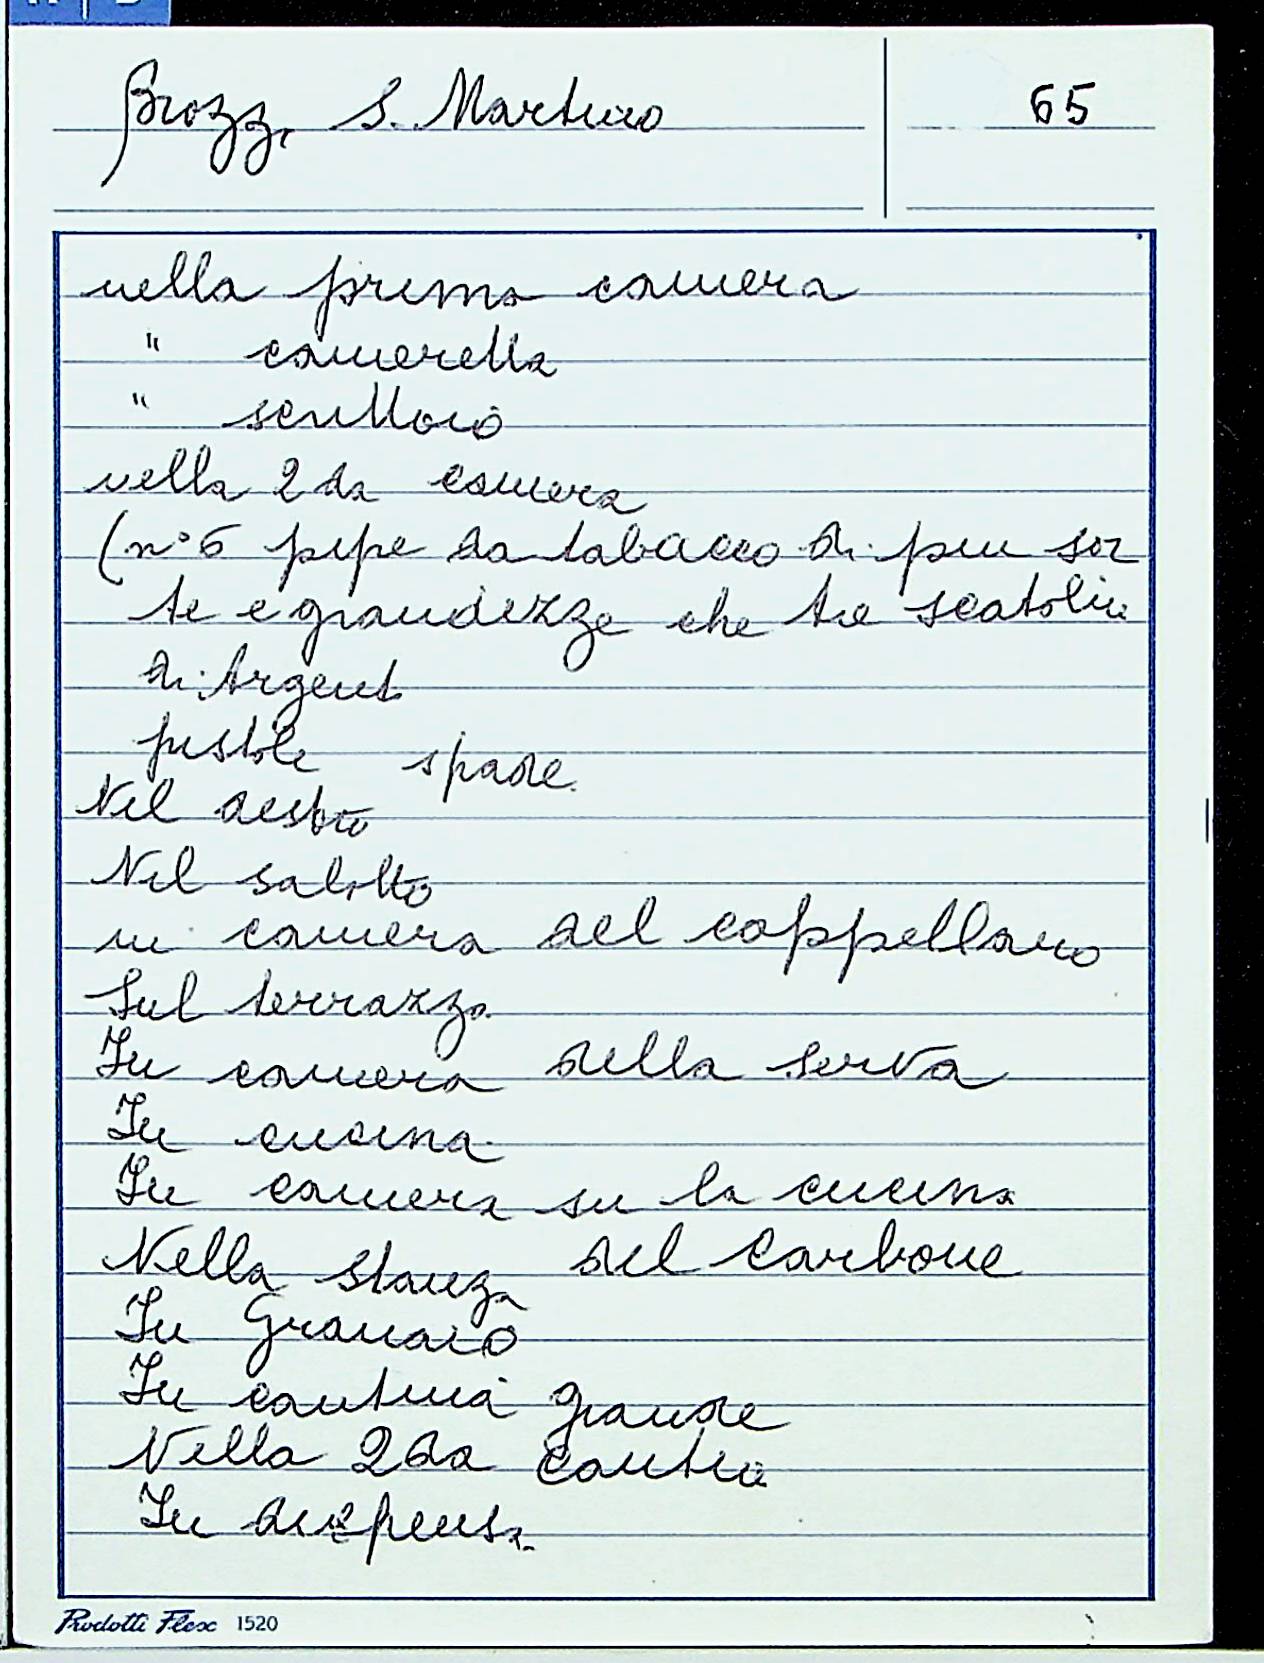 Brozzi, S. Martino
65
nella prima camera
" camerella
" scrittoio
nella 2da camera
(n° 6 pipe da tabacco di piu sor
te e grandezze che tre scatolin
di Argent
pistole spade
Nel destro
Nel salotto
in camera del cappellano
Sul terrazzo
In camera della serva
In cucina
In camera su la cucina
Nella stanza del carbone
In Granaio
In cantina grande
Nella 2da cantina
In dispensa
Prodotti Flex 1520